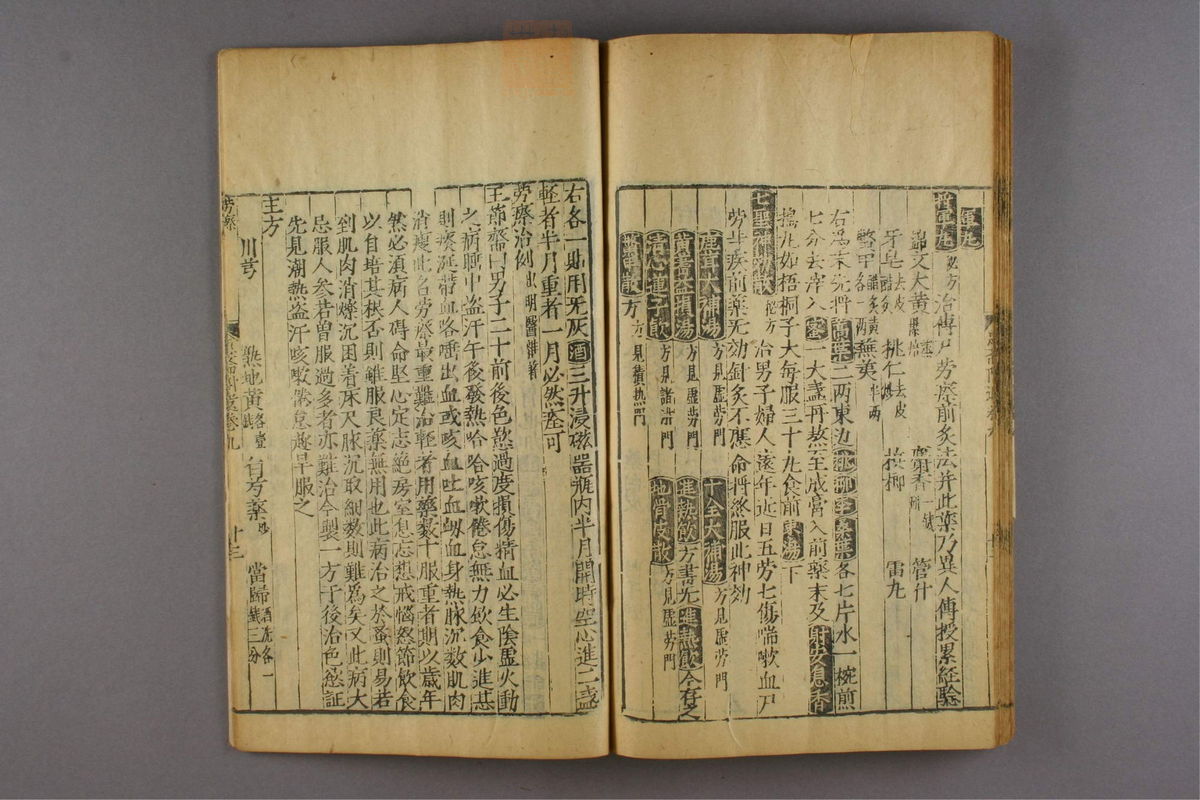 雷丸
將軍丸 秘方 治傳尸勞瘵前灸法并此藥乃異人傳授累經驗
錦文大黃 麝香 管仲
牙皂 去皮醋炙 桃仁 去皮 檳榔 雷丸
鱉甲 醋炙黃各一兩 蕪荑 半兩
右為末先將蒿葉二兩東边桃柳李桑葉各七片水一椀煎
七分去滓入蜜一大盞再熬至成膏入前藥末及麝安息香
搗丸如梧桐子大每服三十丸食前棗湯下
七聖神效散 秘方 治男子婦人遠年近日五勞七傷喘嗽血尸
勞虫疾前藥无効針灸不應命將終服此神効
鹿茸大補湯 方見虛勞門 十全大補湯 方見虛勞門
黃芪益損湯 方見虛勞門 進熱飲 方書无進熱飲今存之
清心蓮子飲 方見諸淋門 地骨皮散 方見虛勞門
鱉甲散方 方見積熱門
右各一貼用无灰酒三升浸磁器瓶内半月開時空心進二盞
輕者半月重者一月必然瘥可
勞瘵治例 出明醫雜著
王節齋曰男子二十前後色慾過度損傷精血必生陰虛火動
之病睡中盜汗午後發熱哈哈咳嗽倦怠無力飲食少進甚
則痰涎帶血咯唾出血或咳血吐血衂血身熱脉沉數肌肉
消瘦此名勞瘵最重難治輕者用藥數十服重者期以歲年
然必須病人碍命堅心定志絕房室息妄想戒惱怒節飲食
以自培其根否則雖服良藥無用也此病治之於蚤則易若
到肌肉消爍沉困着床尺脉沉取細數則難為矣又此病大
忌服人參若曾服過多者亦難治今製一方于後治色慾証
先見潮熱盜汗咳嗽倦怠趂早服之
主方
川芎 熟地黃 各壹錢 白芍藥 炒 當歸 酒洗各一錢三分
勞瘵 十三